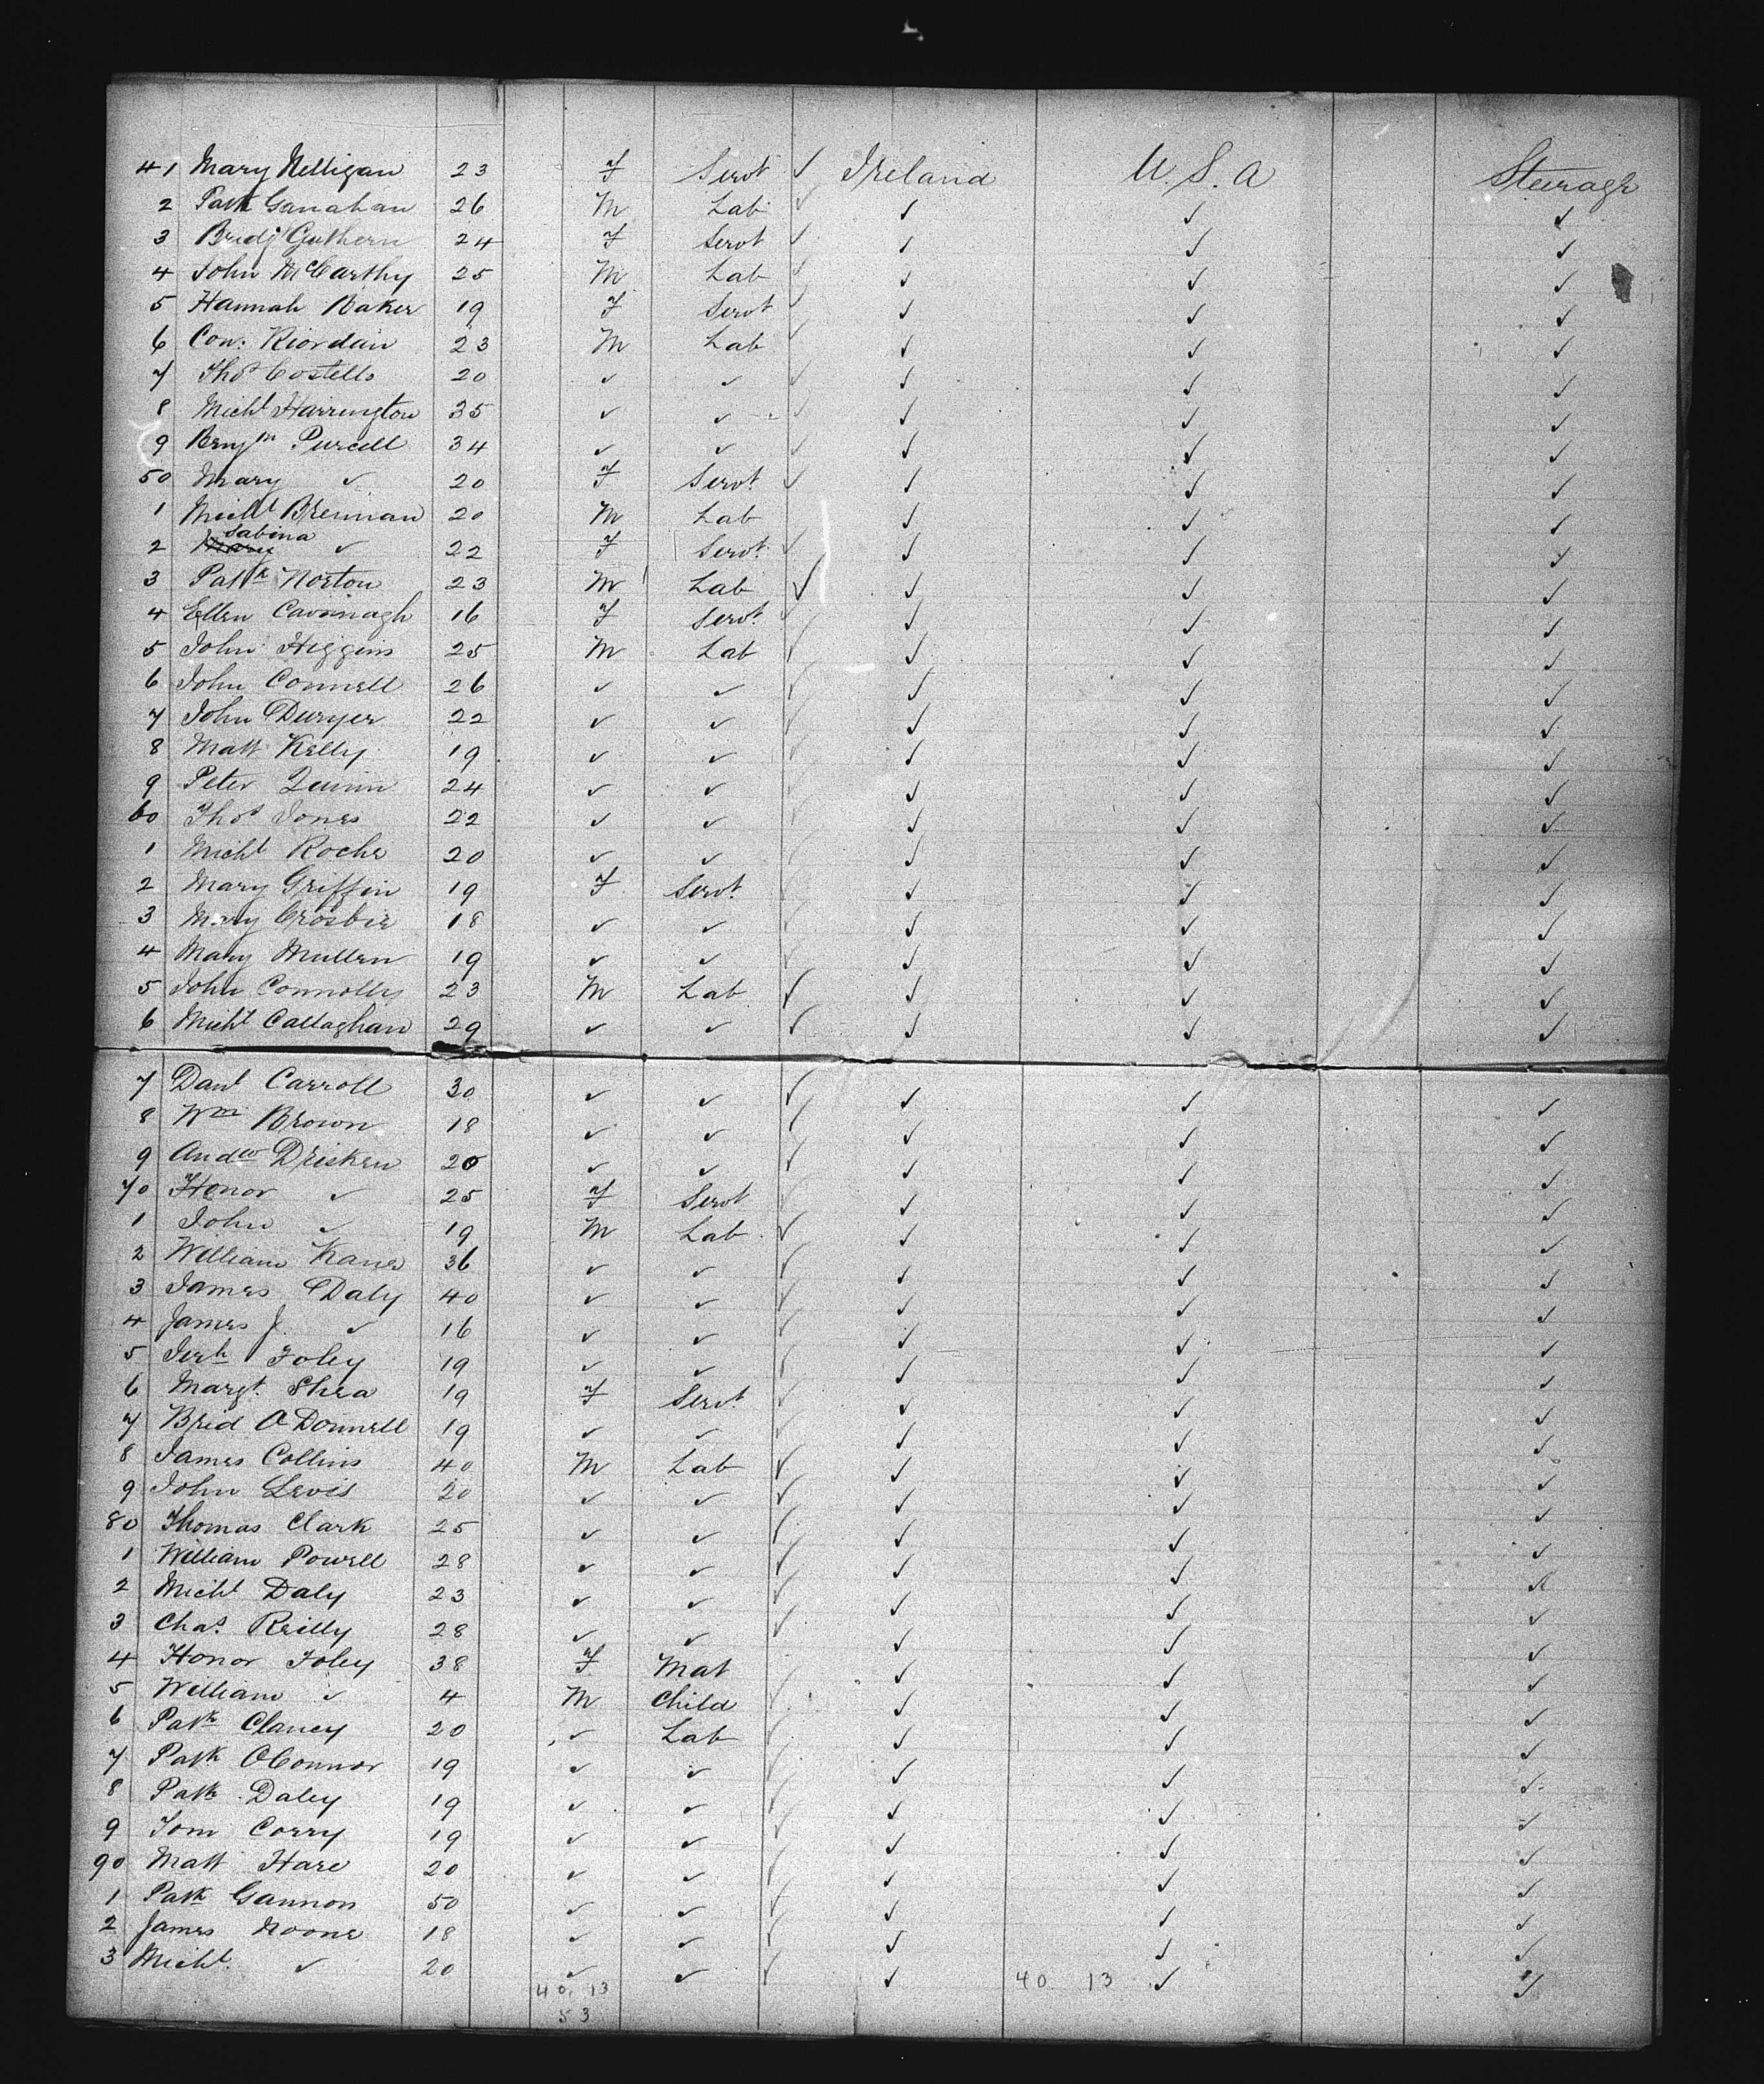 41 Mary Nelligan 23 F Servt ✓ Ireland U.S.A Steeragh
2 Patk Ganahan 26 M Lab ✓ ✓ ✓ ✓
3 Bridj Guthern 24 F Servt ✓ ✓ ✓ ✓
4 John McCarthy 25 M Lab ✓ ✓ ✓ ✓
5 Hannah Baker 19 F Servt ✓ ✓ ✓ ✓
6 Con. Riordan 23 M Lab ✓ ✓ ✓ ✓
7 Thos Costello 20 ✓ ✓ ✓ ✓ ✓ ✓
8 Michl Harrington 35 ✓ ✓ ✓ ✓ ✓ ✓
9 Benjm Purcell 34 ✓ ✓ ✓ ✓ ✓ ✓
50 Mary ✓ 20 F Servt ✓ ✓ ✓ ✓
1 Michl Brennan 20 M Lab ✓ ✓ ✓
2 Sabina ✓ 22 F Servt ✓ ✓ ✓ ✓
3 Patk Norton 23 M Lab ✓ ✓ ✓ ✓
4 Ellen Cavanagh 16 F Servt ✓ ✓ ✓ ✓
5 John Higgins 25 M Lab ✓ ✓ ✓ ✓
6 John Connell 26 ✓ ✓ ✓ ✓ ✓ ✓
7 John Dwyer 22 ✓ ✓ ✓ ✓ ✓ ✓
8 Matt Kelly 19 ✓ ✓ ✓ ✓ ✓ ✓
9 Peter Quinn 24 ✓ ✓ ✓ ✓ ✓ ✓
60 Thos Jones 22 ✓ ✓ ✓ ✓ ✓ ✓
1 Michl Roche 20 ✓ ✓ ✓ ✓ ✓ ✓
2 Mary Griffin 19 F Servt. ✓ ✓ ✓ ✓
3 Mary Crosbie 18 ✓ ✓ ✓ ✓ ✓ ✓
4 Mary Mullen 19 ✓ ✓ ✓ ✓ ✓ ✓
5 John Connolly 23 M Lab ✓ ✓ ✓ ✓
6 Michl Callaghan 29 ✓ ✓ ✓ ✓ ✓ ✓
7 Danl Carroll 30 ✓ ✓ ✓ ✓ ✓ ✓
8 Wm Brown 18 ✓ ✓ ✓ ✓ ✓ ✓
9 Andw Drisken 20 ✓ ✓ ✓ ✓ ✓ ✓
70 Honor ✓ 25 F Servt ✓ ✓ ✓ ✓
1 John ✓ 19 M Lab ✓ ✓ ✓ ✓
2 William Kane 36 ✓ ✓ ✓ ✓ ✓ ✓
3 James Daly 40 ✓ ✓ ✓ ✓ ✓ ✓
4 James J. ✓ 16 ✓ ✓ ✓ ✓ ✓ ✓
5 Jerh Foley 19 ✓ ✓ ✓ ✓ ✓ ✓
6 Margt. Shea 19 F Servt ✓ ✓ ✓ ✓
7 Brid O Donnell 19 ✓ ✓ ✓ ✓ ✓ ✓
8 James Collins 40 M Lab ✓ ✓ ✓ ✓
9 John Levis 20 ✓ ✓ ✓ ✓ ✓ ✓
80 Thomas Clark 25 ✓ ✓ ✓ ✓ ✓ ✓
1 William Powell 28 ✓ ✓ ✓ ✓ ✓ ✓
2 Michl Daly 23 ✓ ✓ ✓ ✓ ✓ ✓
3 Chas. Reilly 28 ✓ ✓ ✓ ✓ ✓ ✓
4 Honor Foley 38 F Mat ✓ ✓ ✓ ✓
5 William ✓ 4 M Child ✓ ✓ ✓ ✓
6 Patk Clancy 20 ✓ Lab ✓ ✓ ✓ ✓
7 Patk OConnor 19 ✓ ✓ ✓ ✓ ✓ ✓
8 Patk Daley 19 ✓ ✓ ✓ ✓ ✓ ✓
9 Tom Corry 19 ✓ ✓ ✓ ✓ ✓ ✓
90 Matt Hare 20 ✓ ✓ ✓ ✓ ✓ ✓
1 Patk Gannon 50 ✓ ✓ ✓ ✓ ✓ ✓
2 James Noone 18 ✓ ✓ ✓ ✓ ✓ ✓
3 Michl. ✓ 20 ✓ ✓ ✓ ✓ ✓ ✓
40. 13 40 13
53